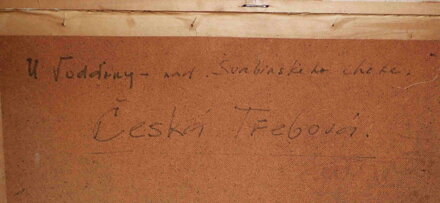 U Vodárny - nad Švabinského chatou.
Česká Třebová.